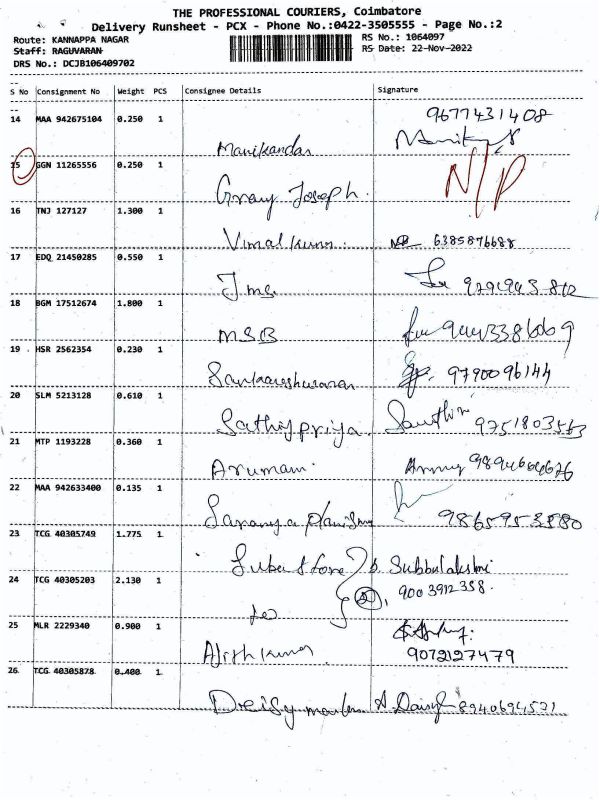 THE PROFESSIONAL COURIERS, Coimbatore
Delivery Runsheet - PCX - Phone No.:0422-3505555 - Page No.:2
Route: KANNAPPA NAGAR RS No.: 1064097
Staff: RAGUVARAN RS Date: 22-Nov-2022
DRS No.: DCJB106409702
S No Consignment No Weight PCS Consignee Details Signature
14 MAA 942675104 0.250 1
9677431408
Manikandan
15 GGN 11265556 0.250 1
Joseph. N/P
16 TNJ 127127 1.300 1
Vimal kumar. 6385876688
17 EDQ 21450285 0.550 1
Jms.
18 BGM 17512674 1.800 1
MSB
19 HSR 2562354 0.230 1
Sankareshwaran 9790096144
20 SLM 5213128 0.610 1
Sathiyapriya
21 MTP 1193228 0.360 1
Arumam.
22 MAA 942633400 0.135 1
Saranya 9865953580
23 TCG 40305749 1.775 1
Suba Store Subbulakshmi
24 TCG 40305203 2.130 1
9003912358.
25 MLR 2229340 0.900 1
Ajith kumar 9072127479
26 TCG 40305878 0.400 1
A. Daisy 8940694521